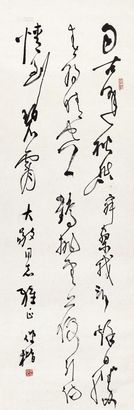 自古逢秋悲寂寥我言秋日勝
春朝晴空一鶴排雲上便引詩
情到碧霄 同志雅正